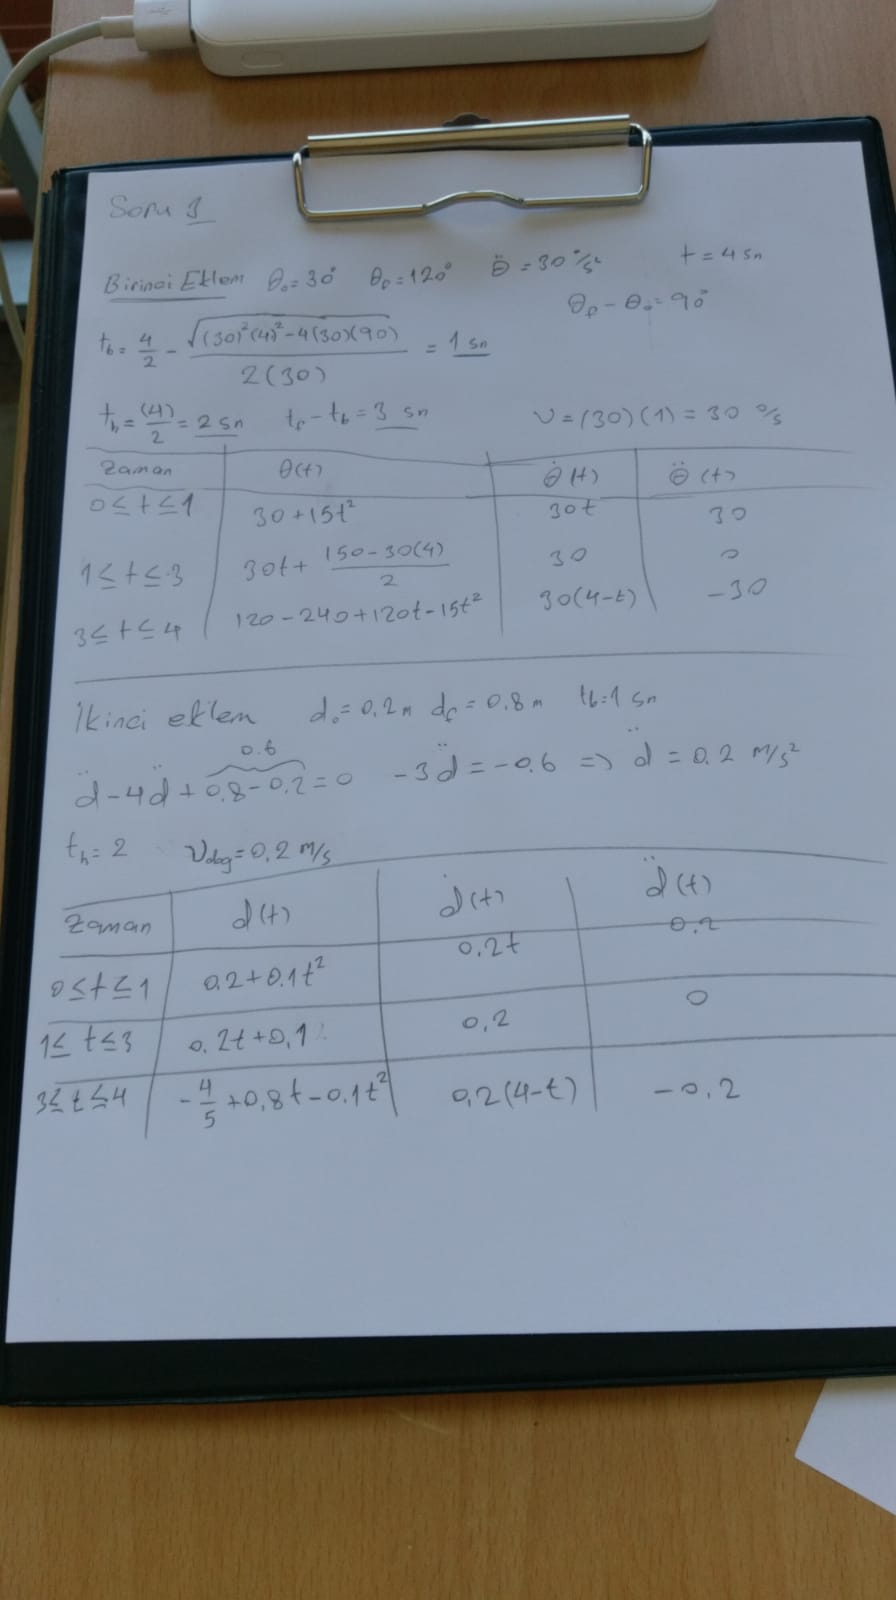 Soru 1
Birinci Eklem θ₀=30° θf=120° θ̈=30°/s² t=4sn
θf-θ₀=90°
tb=4/2-√((30)²(4)²-4(30)(90))/2(30)=1sn
th=(4)/2=2sn tf-tb=3 sn V=(30)(1)=30 °/s
Zaman θ(t) θ̇(t) θ̈(t)
0≤t≤1 30+15t² 30t 30
1≤t≤3 30t+(150-30(4))/2 30 0
3≤t≤4 120-240+120t-15t² 30(4-t) -30
İkinci eklem d₀=0,2m df=0,8m tb=1 sn
0.6
d̈-4d̈+0,8-0,2=0 -3d̈=-0,6 => d̈=0.2 m/s²
th=2 Vdoğ=0,2 m/s
Zaman d(t) ḋ(t) d̈(t)
0≤t≤1 0.2+0.1t² 0,2t 0.2
1≤t≤3 0.2t+0,1 0,2 0
3≤t≤4 -4/5+0,8t-0.1t² 0,2(4-t) -0,2